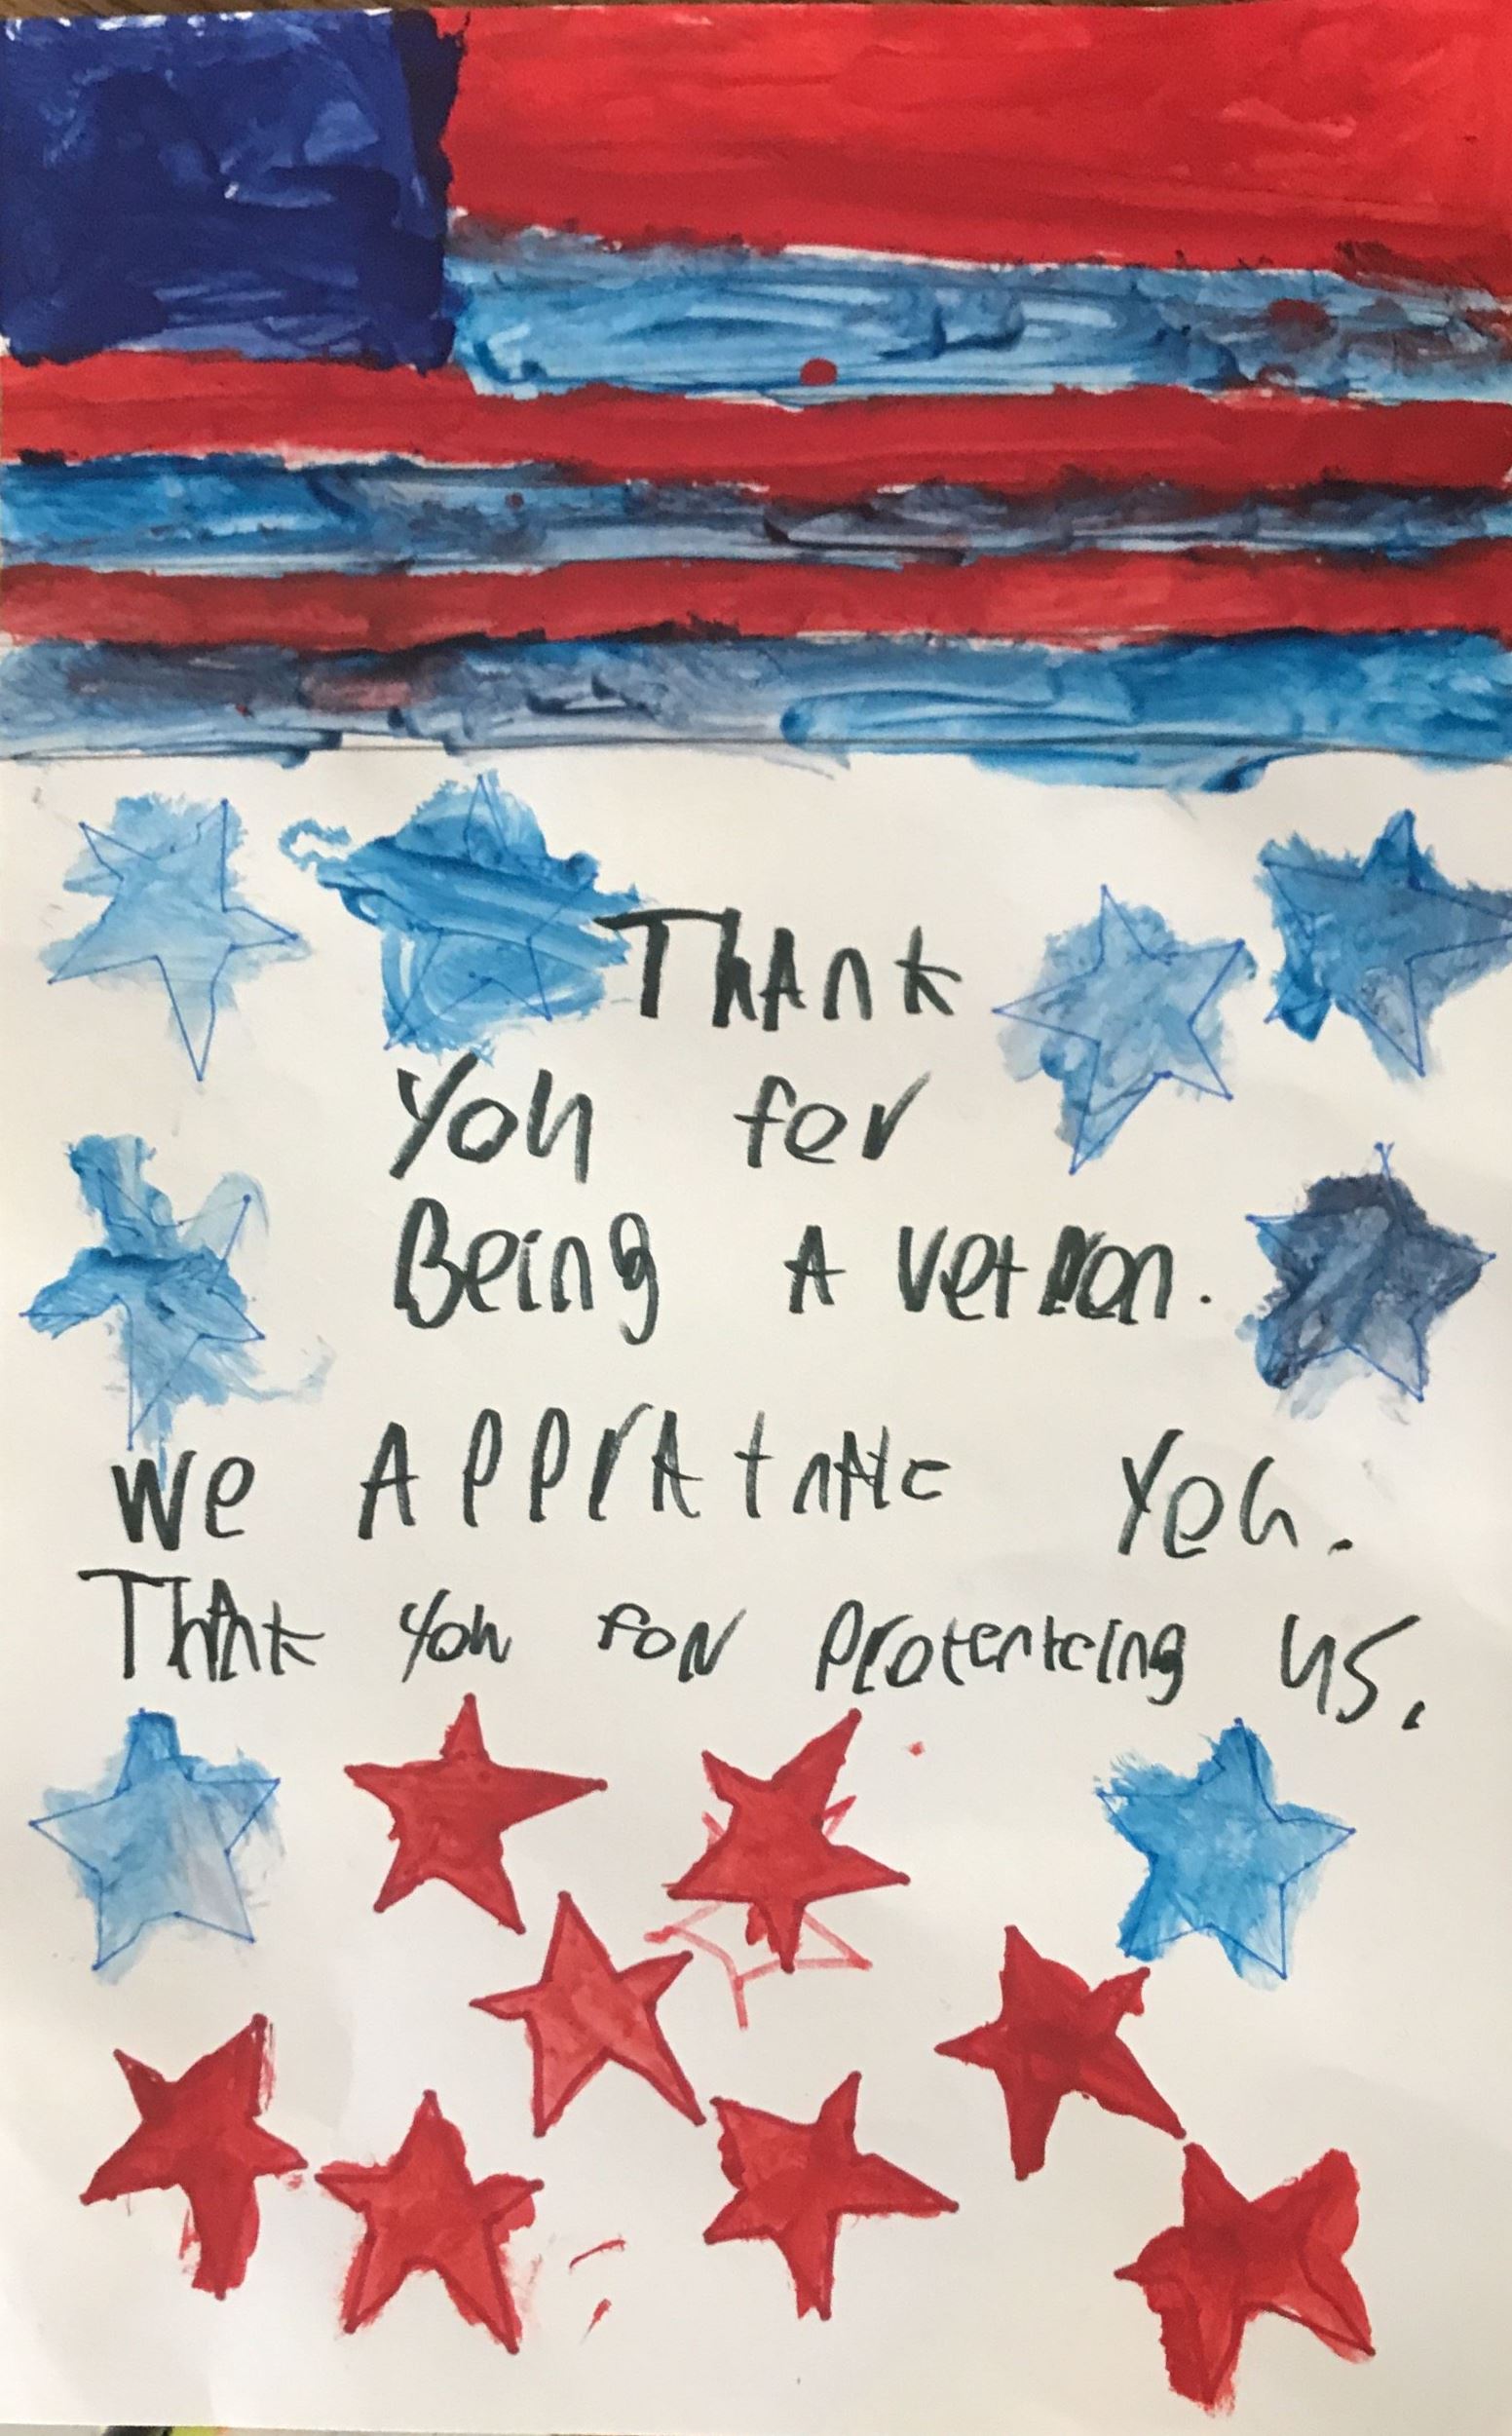 Thank
you for
Being A vetron.
we Appratnate you.
Thank you for protenteing us.